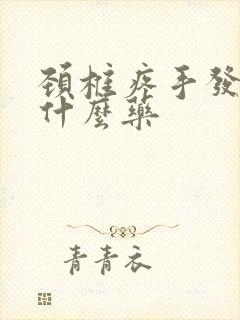 頚椎疼手發
什麼藥
青青衣